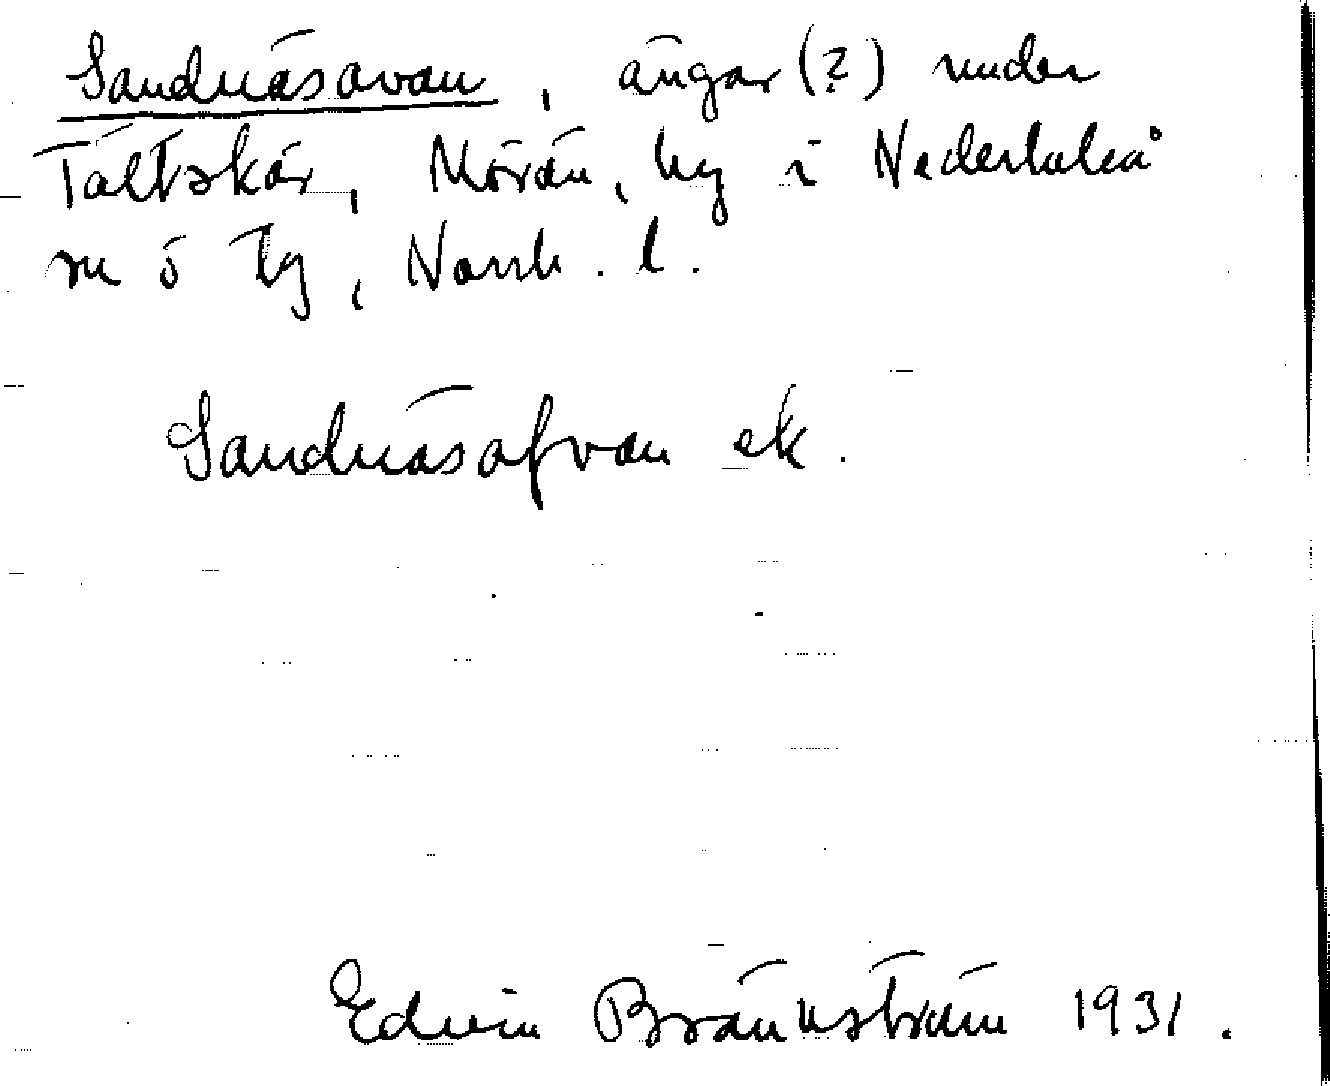 Sandnäsavan, ängar (?) under
Tältskär, Mörön, hg i Nederluleå
sn o tg, Norrb. l.
Sandnäsafvan ek.
Edvin Brännström 1931.